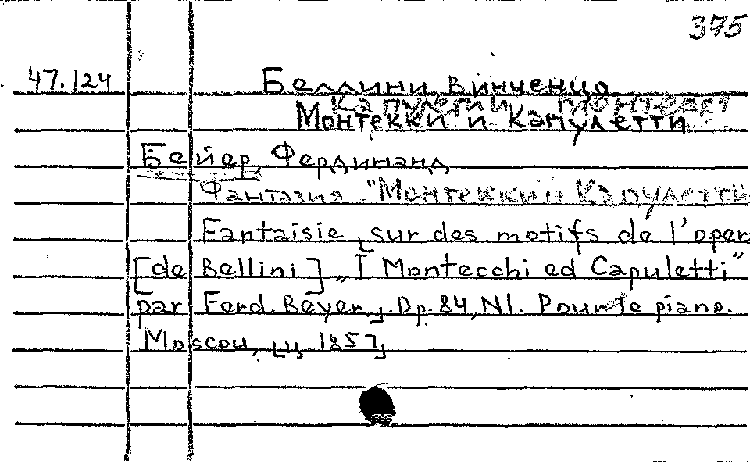 375
47.124 Беллини, Винченцо
Капулетти
Монтекки и Капулетти
Бейер Фердинанд
Фантазия "Монтекки и Капулетти
Fantaisie sur des motifs de l'oper
[de Bellini] „I Montecchi ed Capuletti"
par Ferd. Beyer.] Op. 84, N1. Pour le piano.
Moscou, [ц. 1857]